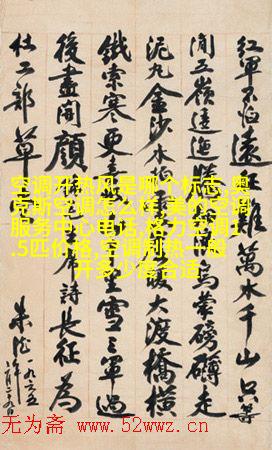 红軍不怕遠征難萬水千山只等
閒五嶺逶迤騰烏蒙磅礴走
泥丸金沙水拍暖大渡橋横
鐵索寒更喜里雪三軍過
後盡開顏席詩長征為
杜工部草堂
朱德 一九六五
空调开热风是哪个标志,奥
克斯空调怎么样,美的空调
服务中心电话,格力空调1
.5匹价格,空调制热一般
开多少度合适
无为斋 www.52wwz.cn